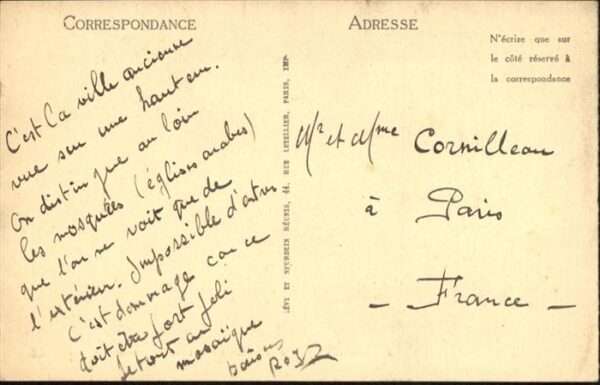 CORRESPONDANCE
C'est la ville ancienne
vue sur une hauteur.
On distingue au loin
les mosquées (églises arabes)
que l'on ne voit que de
l'extérieur. Impossible d'entrer
C'est dommage car ce
doit être fort joli
tout au
mosaïque
LÉVY ET NEURDEIN RÉUNIS, 44, RUE LETELLIER, PARIS, IMP.
ADRESSE
N'écrire que sur
le côté réservé à
la correspondance
Mr et Mme Cornilleau
à Paris
- France -